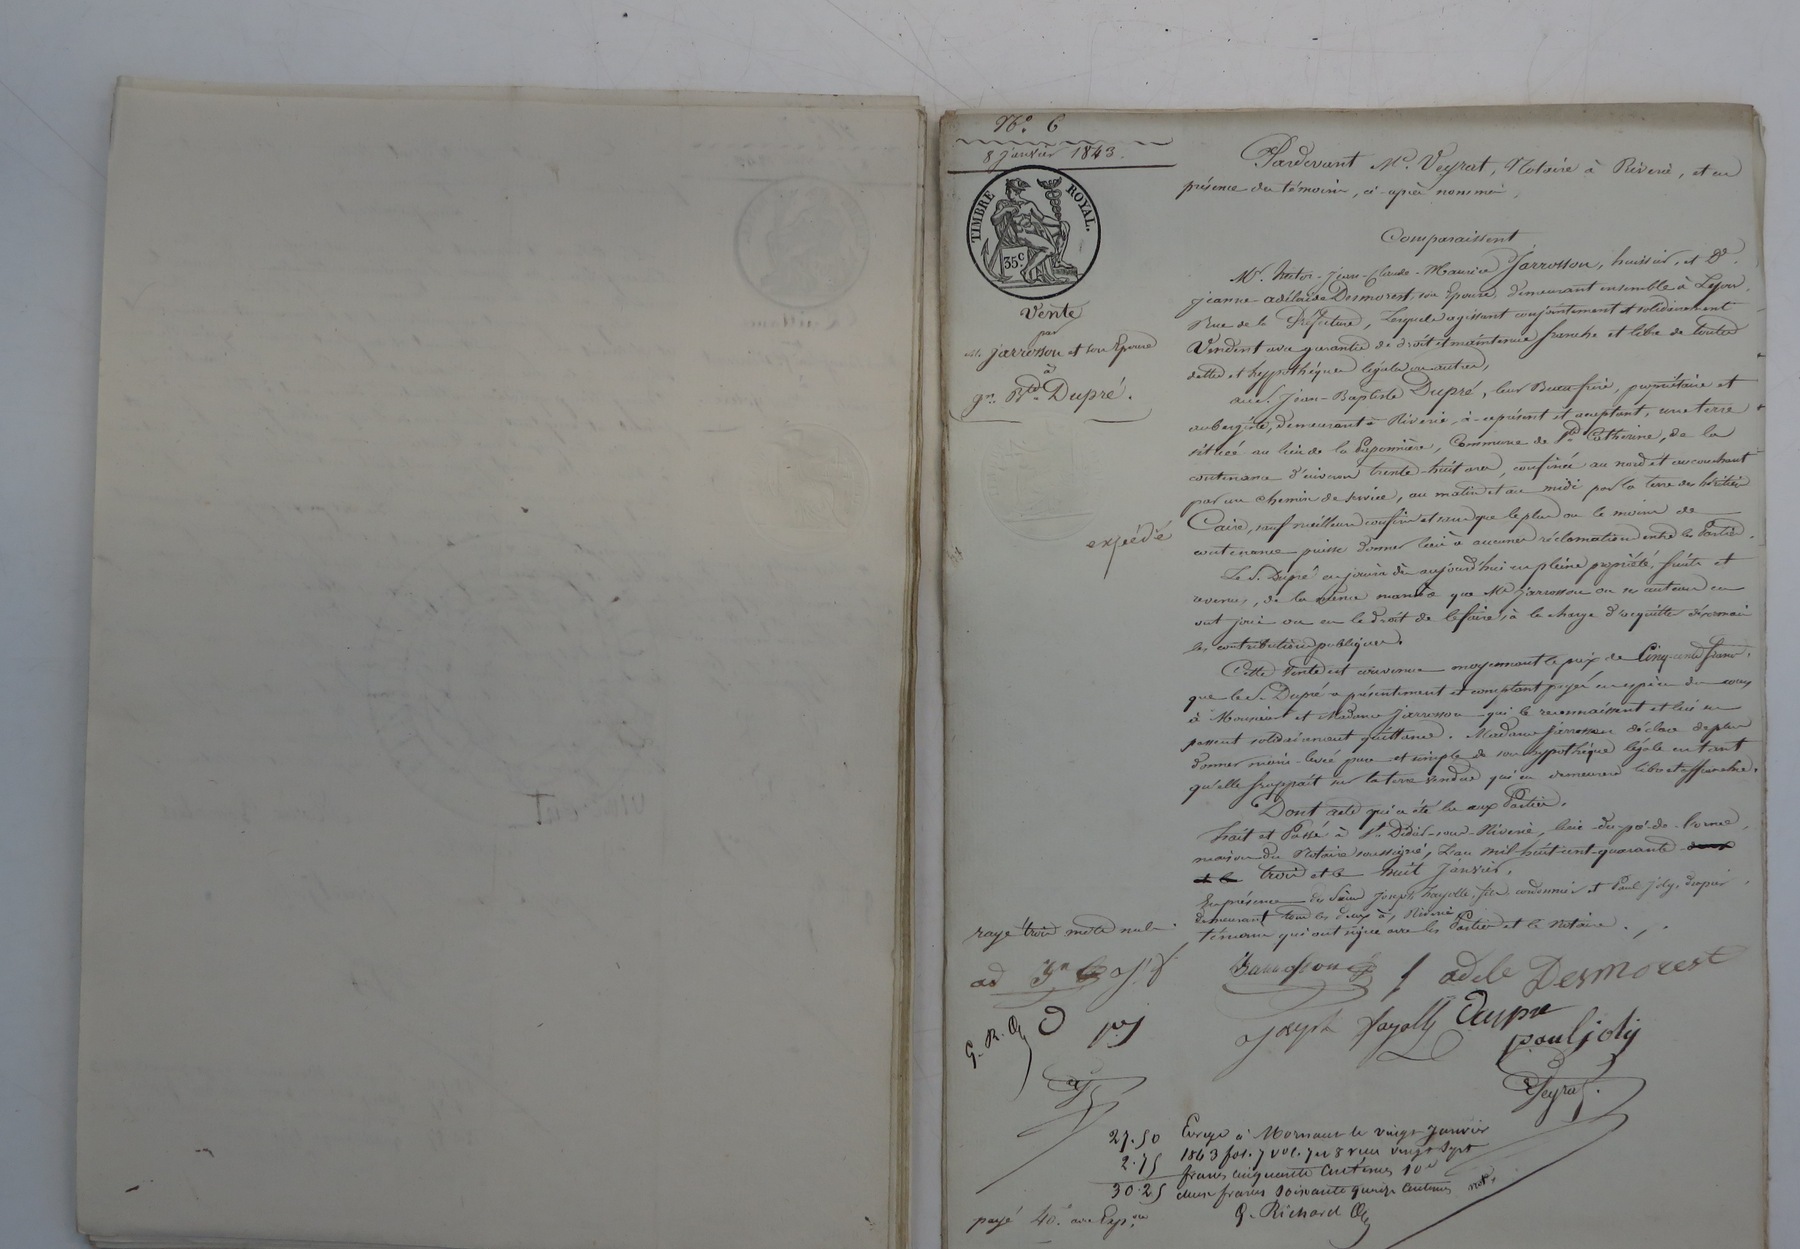 N.° 6
8 janvier 1843.
TIMBRE ROYAL.
35c
Vente
par
M. Jarrosson et son Epouse
à
Jn. Bte. Dupré.
expédié
Pardevant Me. Veyrat, Notaire à Riverie, et en
présence des témoins, ci-après nommés,
Comparaissent
Mr. hector-Jean-Claude-Maurice Jarrosson, huissier, et De.
jeanne-adélaïde Desmorest, son Epouse, demeurant ensemble à Lyon,
Rue de la Préfecture, Lesquels agissant conjointement et solidairement
Vendent avec garantie de droit et maintenue franche et libre de toutes
dettes et hypothéques légales ou autres,
au S. Jean-Baptiste Dupré, leur Beau frère, propriétaire et
aubergiste, demeurant à Riverie, à ce présent et acceptant, une terre
située au lieu de la Paponnière, Commune de Ste. Catherine, de la
contenance d'environ trente-huit ares, confinée au nord et au couchant
par un chemin de service, au matin et au midi par la terre des héritiers
Caire, sauf meilleurs confins et sans que le plus ou le moins de
contenance puisse donner lieu à aucunes réclamations entre les Parties.
Le S. Dupré en jouira dès aujourd'hui en pleine propriété, fruits et
revenus, de la même manière que Mr. Jarrosson ou ses auteurs en
ont joui ou eu le droit de le faire, à la charge d'acquitter désormais
les contributions publiques.
Cette Vente est convenue moyennant le prix de Cinq-cents francs,
que le S. Dupré a présentement et comptant payés en espèces du cours
à Monsieur et Madame Jarrosson qui le reconnaissent et lui en
passent solidairement quittance. Madame Jarrosson déclare de plus
donner main-levée pure et simple de son hypothéque légale en tant
qu'elle frappait sur la terre vendue qui en demeurera libre et affranchie.
Dont acte qui a été lu aux Parties.
Fait et Passé à St. Didier-sous-Riverie, lieu du-pré-de-l'orme,
maison du Notaire soussigné, L'an mil-huit-cent-quarante
et le trois et le huit Janvier.
En présence des Sieurs Joseph Fayolle, fils cordonnier et Paul Joly, drapier,
demeurant tous les deux à Riverie
témoins qui ont signé avec les Parties et le Notaire.
rayé trois mots nuls.
ad
Jarrosson adele Desmorest
joseph fayolle Dupre
paul joly
D pj
G. R.
Veyrat.
27.50 Enregé à Mornant le vingt janvier
2.75 1843 fol. 7 vol. 7 reçu vingt sept
30.25 francs cinquante centimes 10e
deux francs soixante quinze centimes
G. Richard
payé 40.